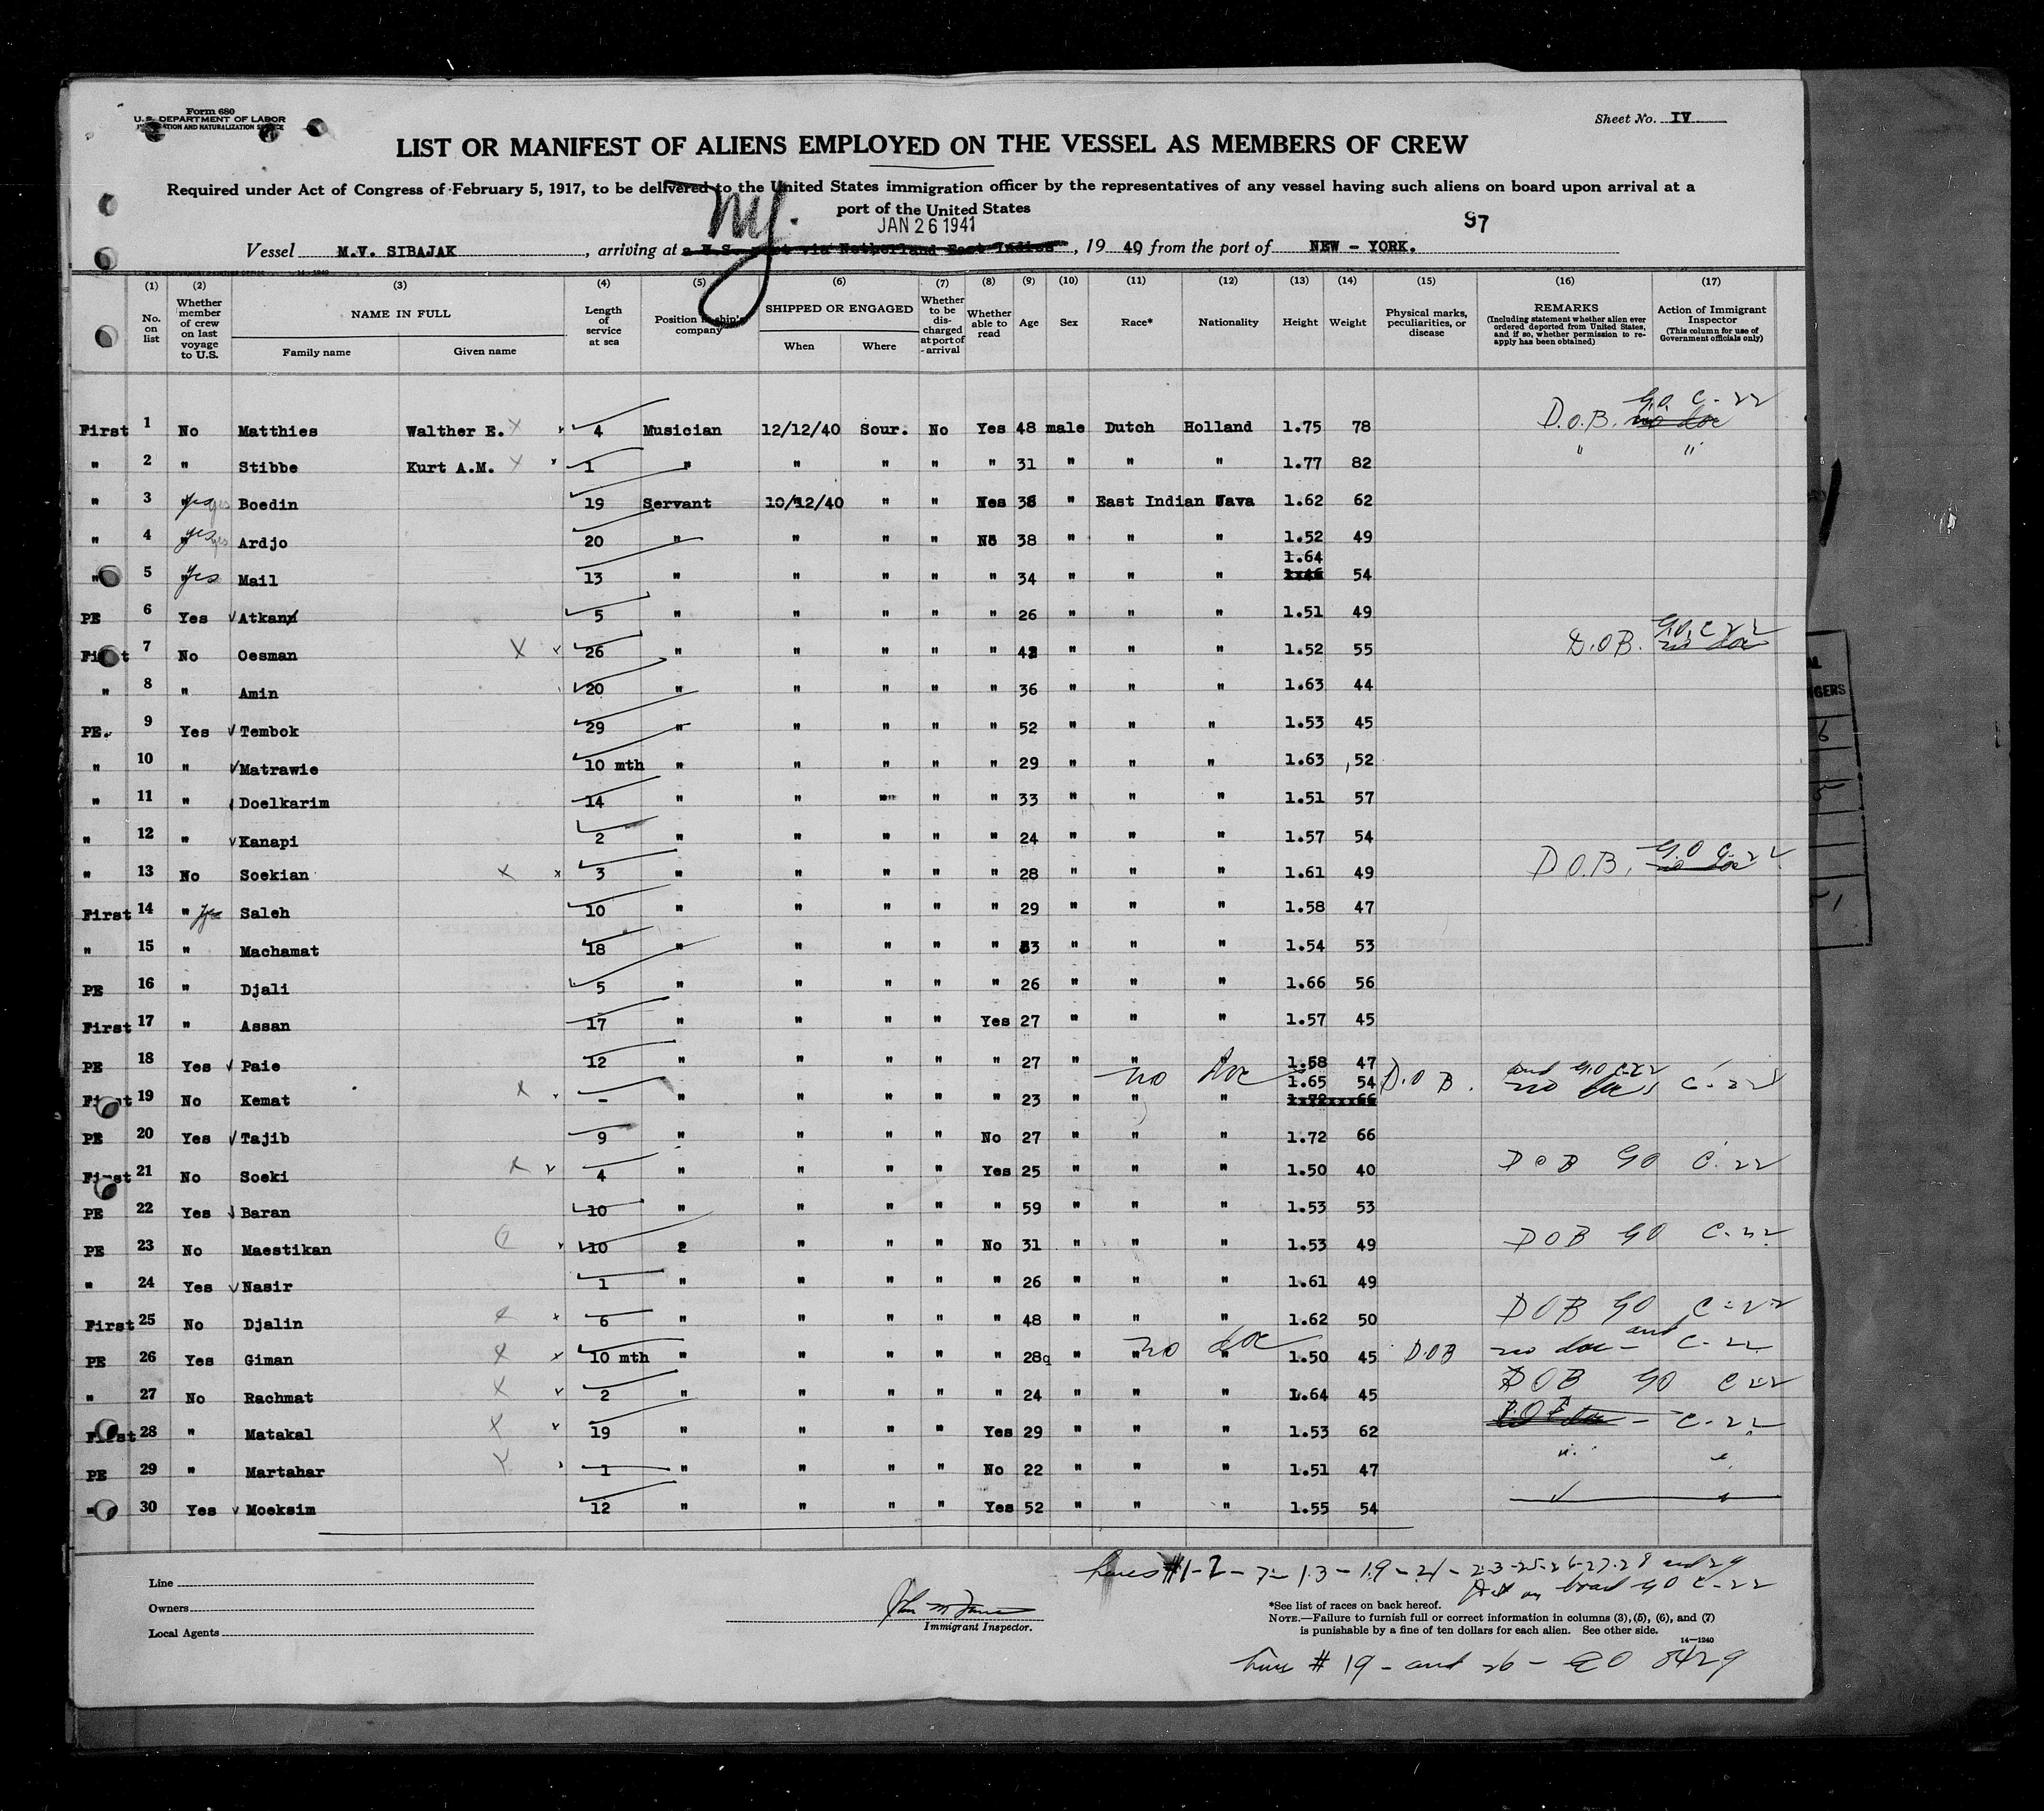 Form 680
U.S. DEPARTMENT OF LABOR
IMMIGRATION AND NATURALIZATION SERVICE
Sheet No. IV
LIST OR MANIFEST OF ALIENS EMPLOYED ON THE VESSEL AS MEMBERS OF CREW
Required under Act of Congress of February 5, 1917, to be delivered to the United States immigration officer by the representatives of any vessel having such aliens on board upon arrival at a
port of the United States
NY.
JAN 26 1941
97
Vessel M.V. SIBAJAK, arriving at a U.S. port via Netherland East Indies, 19 40, from the port of NEW - YORK.
(1) (2) (3) (4) (5) (6) (7) (8) (9) (10) (11) (12) (13) (14) (15) (16) (17)
No. on list
Whether member of crew on last voyage to U.S.
NAME IN FULL
Family name Given name
Length of service at sea
Position in ship's company
SHIPPED OR ENGAGED
When Where
Whether to be discharged at port of arrival
Whether able to read
Age
Sex
Race*
Nationality
Height
Weight
Physical marks, peculiarities, or disease
REMARKS
(Including statement whether alien ever ordered deported from United States, and if so, whether permission to reapply has been obtained)
Action of Immigrant Inspector
(This column for use of Government officials only)
G.O. C-22
First 1 No Matthies Walther E. X 4 Musician 12/12/40 Sour. No Yes 48 male Dutch Holland 1.75 78 D.O.B. no doc
" 2 " Stibbe Kurt A.M. X 1 " " " " " 31 " " " 1.77 82 " "
" 3 yes Boedin 19 Servant 10/12/40 " " 38 " East Indian Java 1.62 62
" 4 yes Ardjo 20 " " " " No 38 " " " 1.52 49
1.64
" 5 yes Mail 13 " " " " " 34 " " " 54
PE 6 Yes Atkan 5 " " " " " 26 " " " 1.51 49
First 7 No Oesman X 26 " " " " " " " " 1.52 55 D.O.B. G.O. C-22 no doc
" 8 " Amin 20 " " " " " 36 " " " 1.63 44
PE. 9 Yes Tembok 29 " " " " " 52 " " " 1.53 45
" 10 " Matrawie 10 mth " " " " " 29 " " " 1.63 52
" 11 " Doelkarim 14 " " " " " 33 " " " 1.51 57
" 12 " Kanapi 2 " " " " " 24 " " " 1.57 54
" 13 No Soekian X x 3 " " " " " 28 " " " 1.61 49 D.O.B. G.O C-22 no doc
First 14 " yes Saleh 10 " " " " " 29 " " " 1.58 47
" 15 " Machamat 18 " " " " " " " " 1.54 53
PE 16 " Djali 5 " " " " " 26 " " " 1.66 56
First 17 " Assan 17 " " " " Yes 27 " " " 1.57 45
PE 18 Yes Paie 12 " " " " " 27 " " " 1.58 47
no doc 1.65 54 D.O B. and G.O C-22
First 19 No Kemat X - " " " " " 23 " " " no doc C-22
PE 20 Yes Tajib 9 " " " " No 27 " " " 1.72 66
First 21 No Soeki X 4 " " " " Yes 25 " " " 1.50 40 DOB GO C-22
PE 22 Yes Baran 10 " " " " " 59 " " " 1.53 53
PE 23 No Maestikan 10 " " " No 31 " " " 1.53 49 DOB GO C-22
" 24 Yes Nasir 1 " " " " " 26 " " " 1.61 49
First 25 No Djalin x 6 " " " " " 48 " " " 1.62 50 DOB GO C-22
no doc and
PE 26 Yes Giman X x 10 mth " " " " " 28 " " " 1.50 45 DOB no doc - C-22
" 27 No Rachmat X 2 " " " " " 24 " " " 1.64 45 DOB GO C22
First 28 " Matakal X 19 " " " " Yes 29 " " " 1.53 62 - C-22
PE 29 " Martahar X 1 " " " " No 22 " " " 1.51 47 " "
" 30 Yes Moeksim 12 " " " " Yes 52 " " " 1.55 54
Lines #1-2-7-13-19-21-23-25-26-27-28 and 29
Det on board GO C-22
Line
Owners
Local Agents
Immigrant Inspector.
*See list of races on back hereof.
NOTE.—Failure to furnish full or correct information in columns (3), (5), (6), and (7)
is punishable by a fine of ten dollars for each alien. See other side.
14—1240
Line # 19 - and 26 - EO 8429